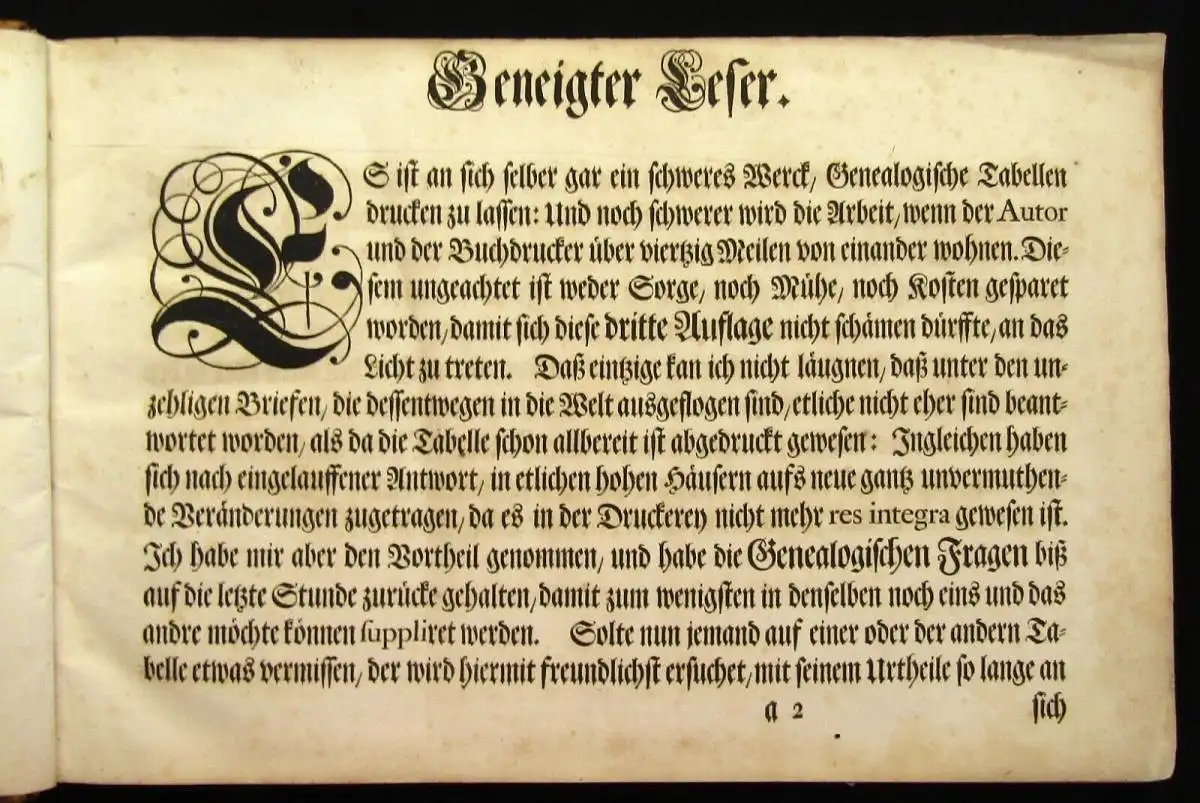 Geneigter Leser.
ES ist an sich selber gar ein schweres Werck/ Genealogische Tabellen
drucken zu lassen: Und noch schwerer wird die Arbeit/ wenn der Autor
und der Buchdrucker über viertzig Meilen von einander wohnen. Die-
sem ungeachtet ist weder Sorge/ noch Mühe/ noch Kosten gesparet
worden/ damit sich diese dritte Auflage nicht schämen dürffte/ an das
Licht zu treten. Daß eintzige kan ich nicht läugnen/ daß unter den un-
zehligen Briefen/ die dessentwegen in die Welt ausgeflogen sind/ etliche nicht eher sind beant-
wortet worden/ als da die Tabelle schon allbereit ist abgedruckt gewesen: Ingleichen haben
sich nach eingelauffener Antwort/ in etlichen hohen Häusern aufs neue gantz unvermuthen-
de Veränderungen zugetragen/ da es in der Druckerey nicht mehr res integra gewesen ist.
Ich habe mir aber den Vortheil genommen/ und habe die Genealogischen Fragen biß
auf die letzte Stunde zurücke gehalten/ damit zum wenigsten in denselben noch eins und das
andre möchte können suppliret werden. Solte nun jemand auf einer oder der andern Ta-
belle etwas vermissen/ der wird hiermit freundlichst ersuchet/ mit seinem Urtheile so lange an
a 2 sich